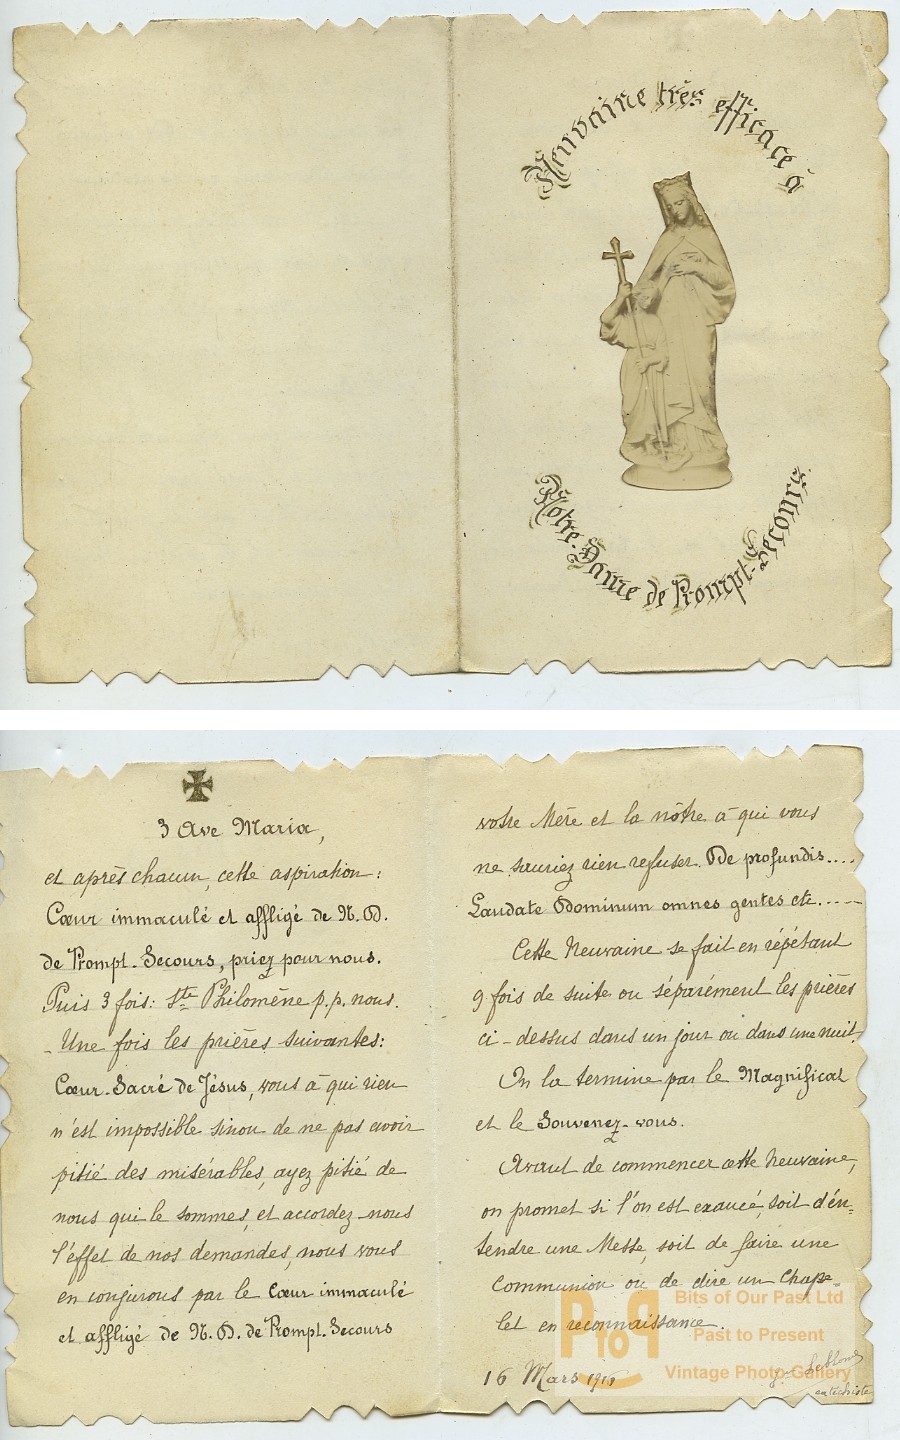 Neuvaine très efficace à
Notre-Dame de Prompt-Secours.
3 Ave Maria,
et après chacun, cette aspiration:
Cœur immaculé et affligé de N. D.
de Prompt-Secours, priez pour nous.
Puis 3 fois: Ste Philomène p. p. nous.
- Une fois les prières suivantes:
Cœur-Sacré de Jésus, vous à qui rien
n'est impossible sinon de ne pas avoir
pitié des misérables, ayez pitié de
nous qui le sommes, et accordez-nous
l'effet de nos demandes, nous vous
en conjurons par le Cœur immaculé
et affligé de N. D. de Prompt-Secours
votre Mère et la nôtre à qui vous
ne sauriez rien refuser. De profundis....
Laudate Dominum omnes gentes etc.....
Cette Neuvaine se fait en répétant
9 fois de suite ou séparément les prières
ci-dessus dans un jour ou dans une nuit.
On la termine par le Magnificat
et le Souvenez-vous.
Avant de commencer cette Neuvaine,
on promet si l'on est exaucé, soit d'en=
tendre une Messe, soit de faire une
Communion ou de dire un Chape-
let en reconnaissance.
16 Mars
Leblond
PtoP
Bits of Our Past Ltd
Past to Present
Vintage Photo-Gallery